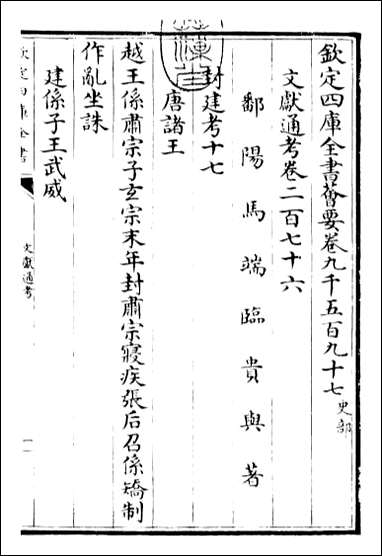 欽定四庫全書薈要卷九千五百九十七史部
文獻通考卷二百七十六
鄱陽馬端臨貴與著
封建考十七
唐諸王
越王係肅宗子玄宗末年封肅宗寢疾張后召係矯制
作亂坐誅
建係子王武威
欽定四庫全書
文獻通考
一